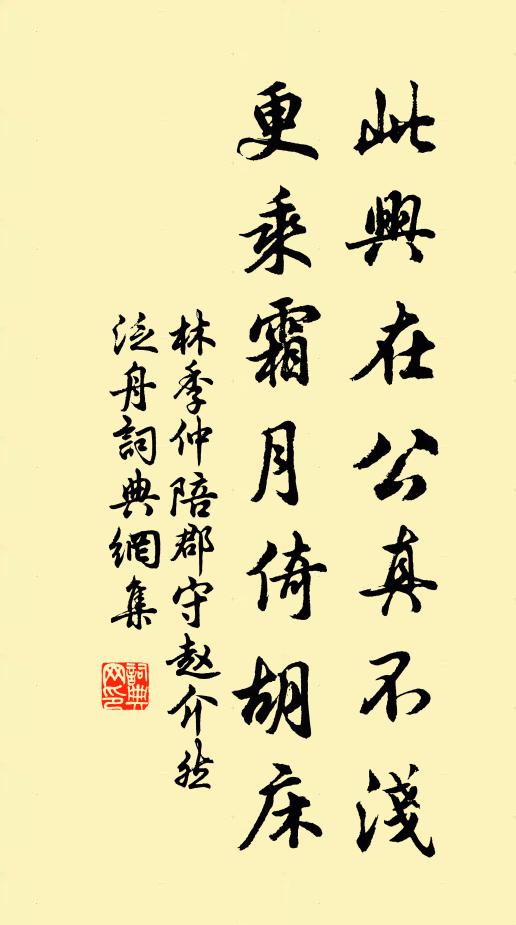 此興在公真不淺
更乘霜月倚胡床
林季仲陪郡守赵介然
泛舟詞典網集
詞典网印